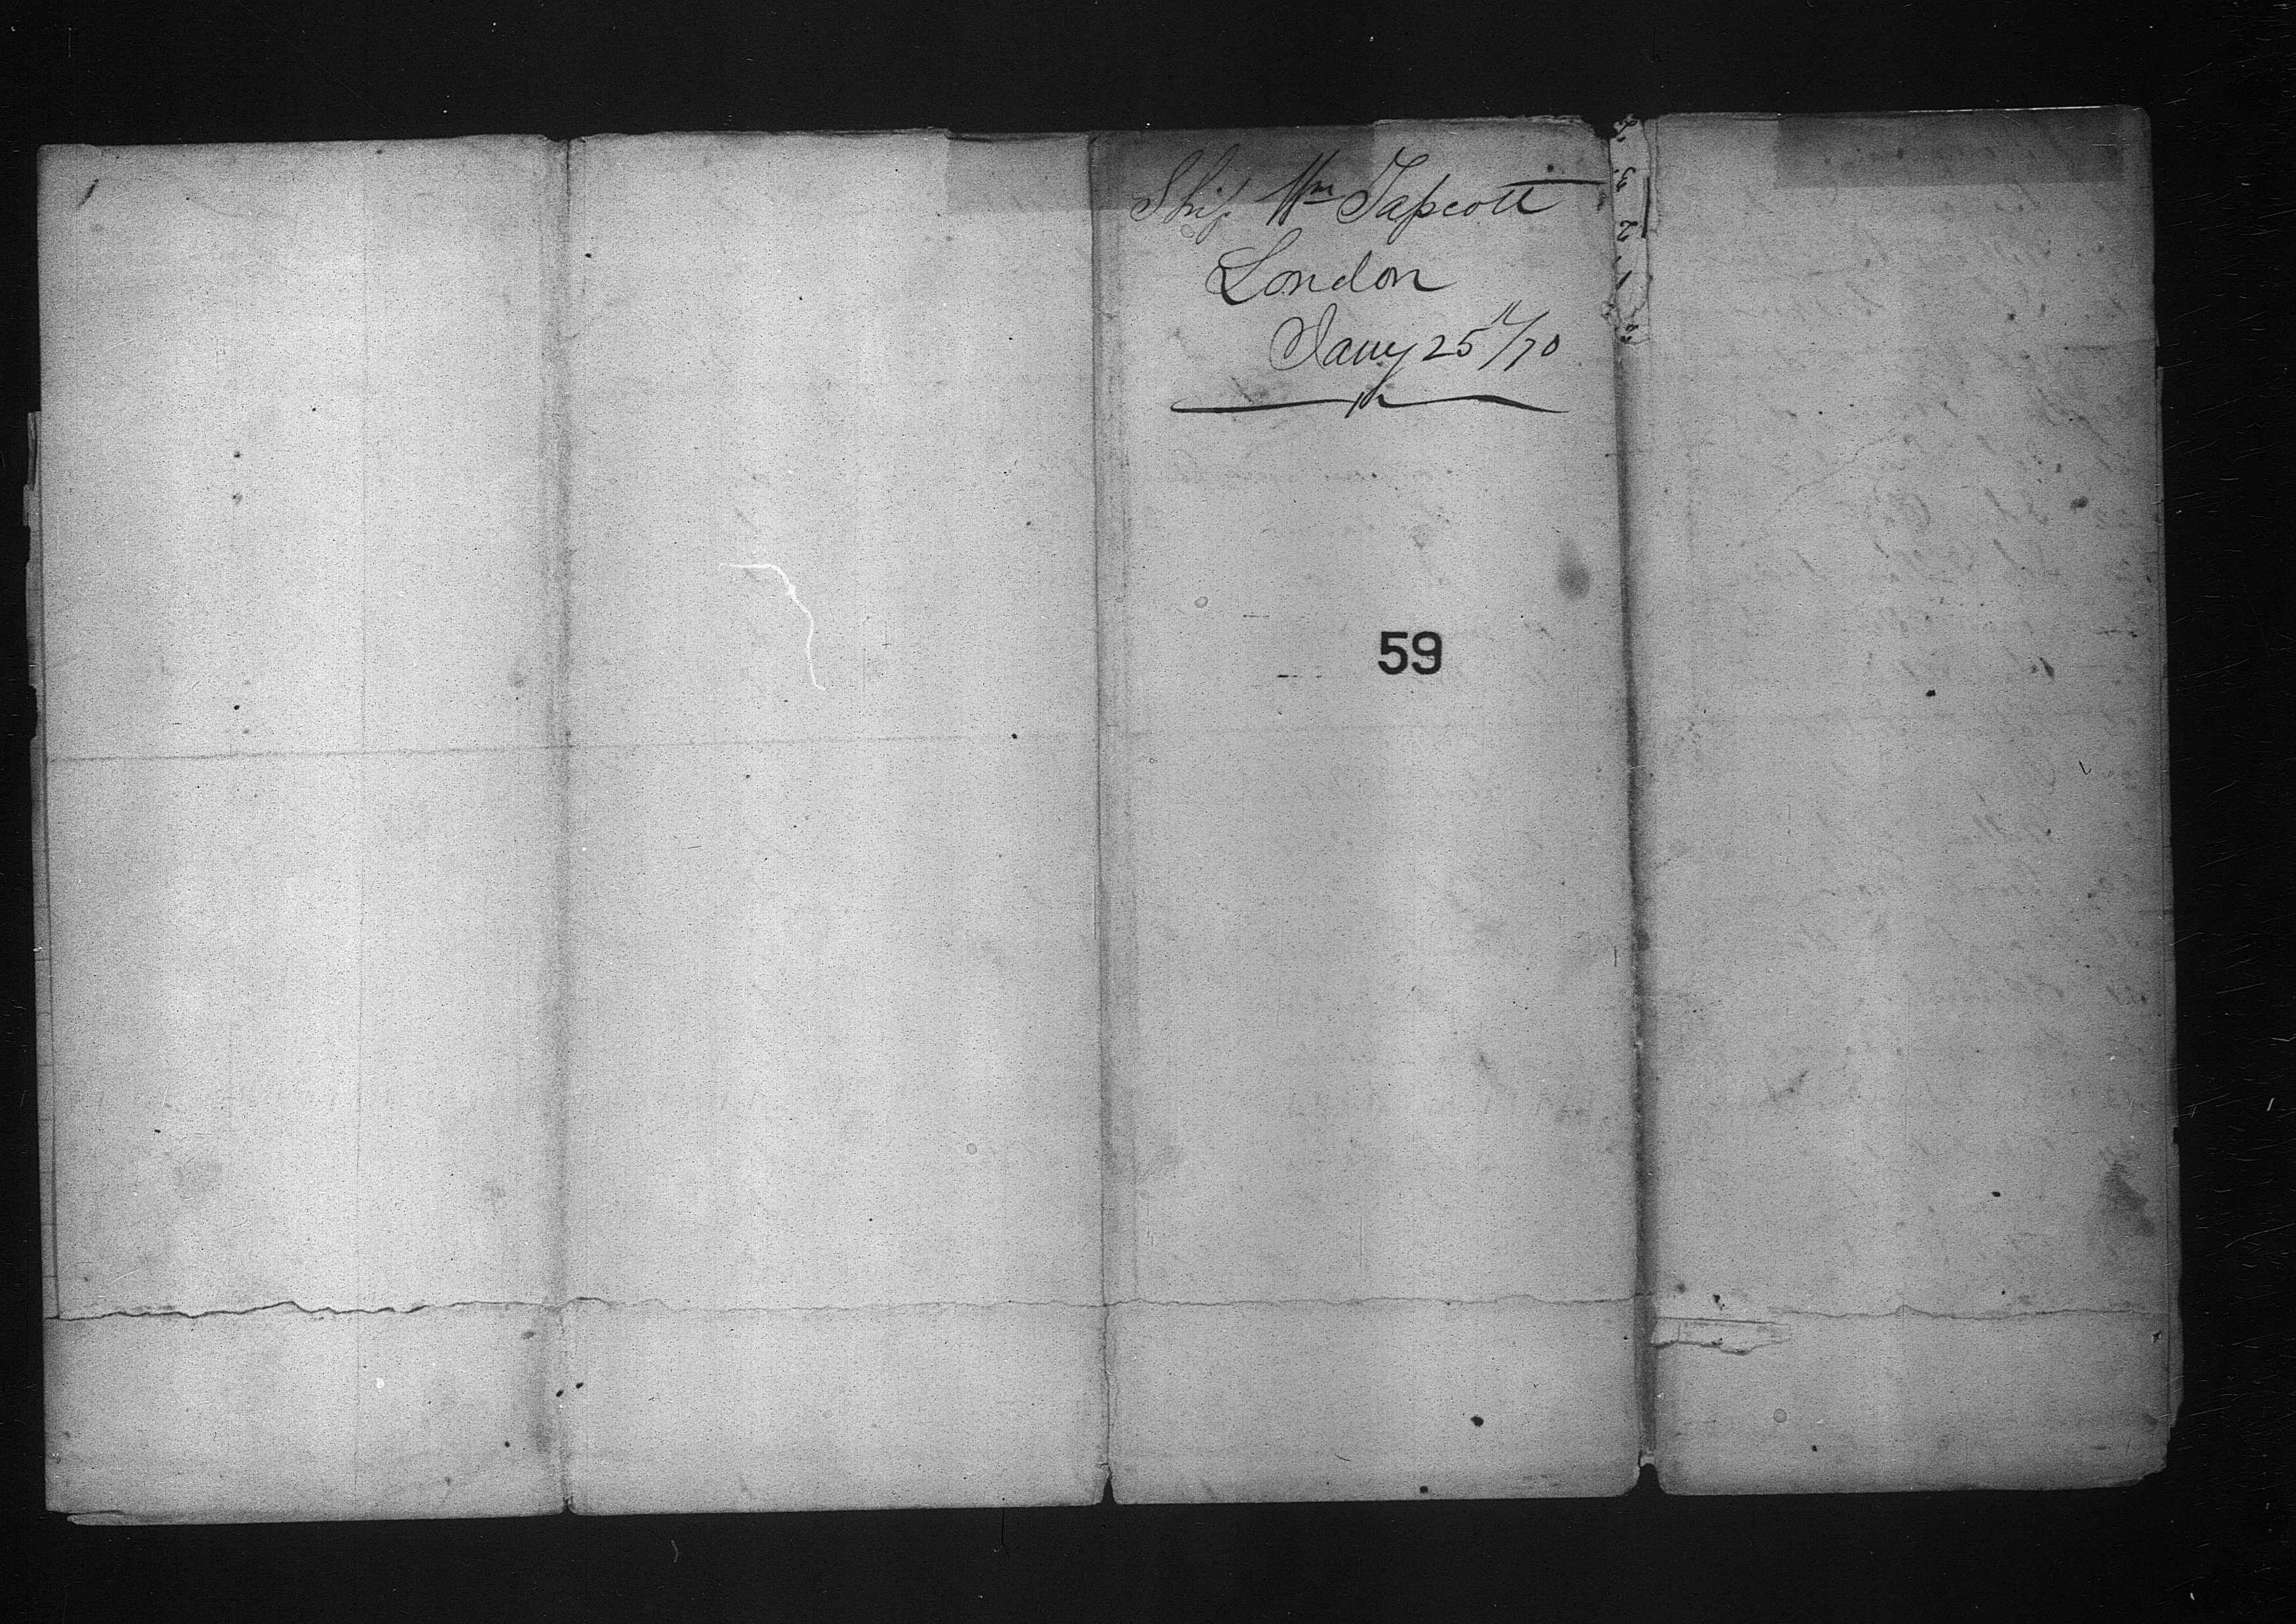 Ship Wm Tapscott
London
Jany 25th/70
59